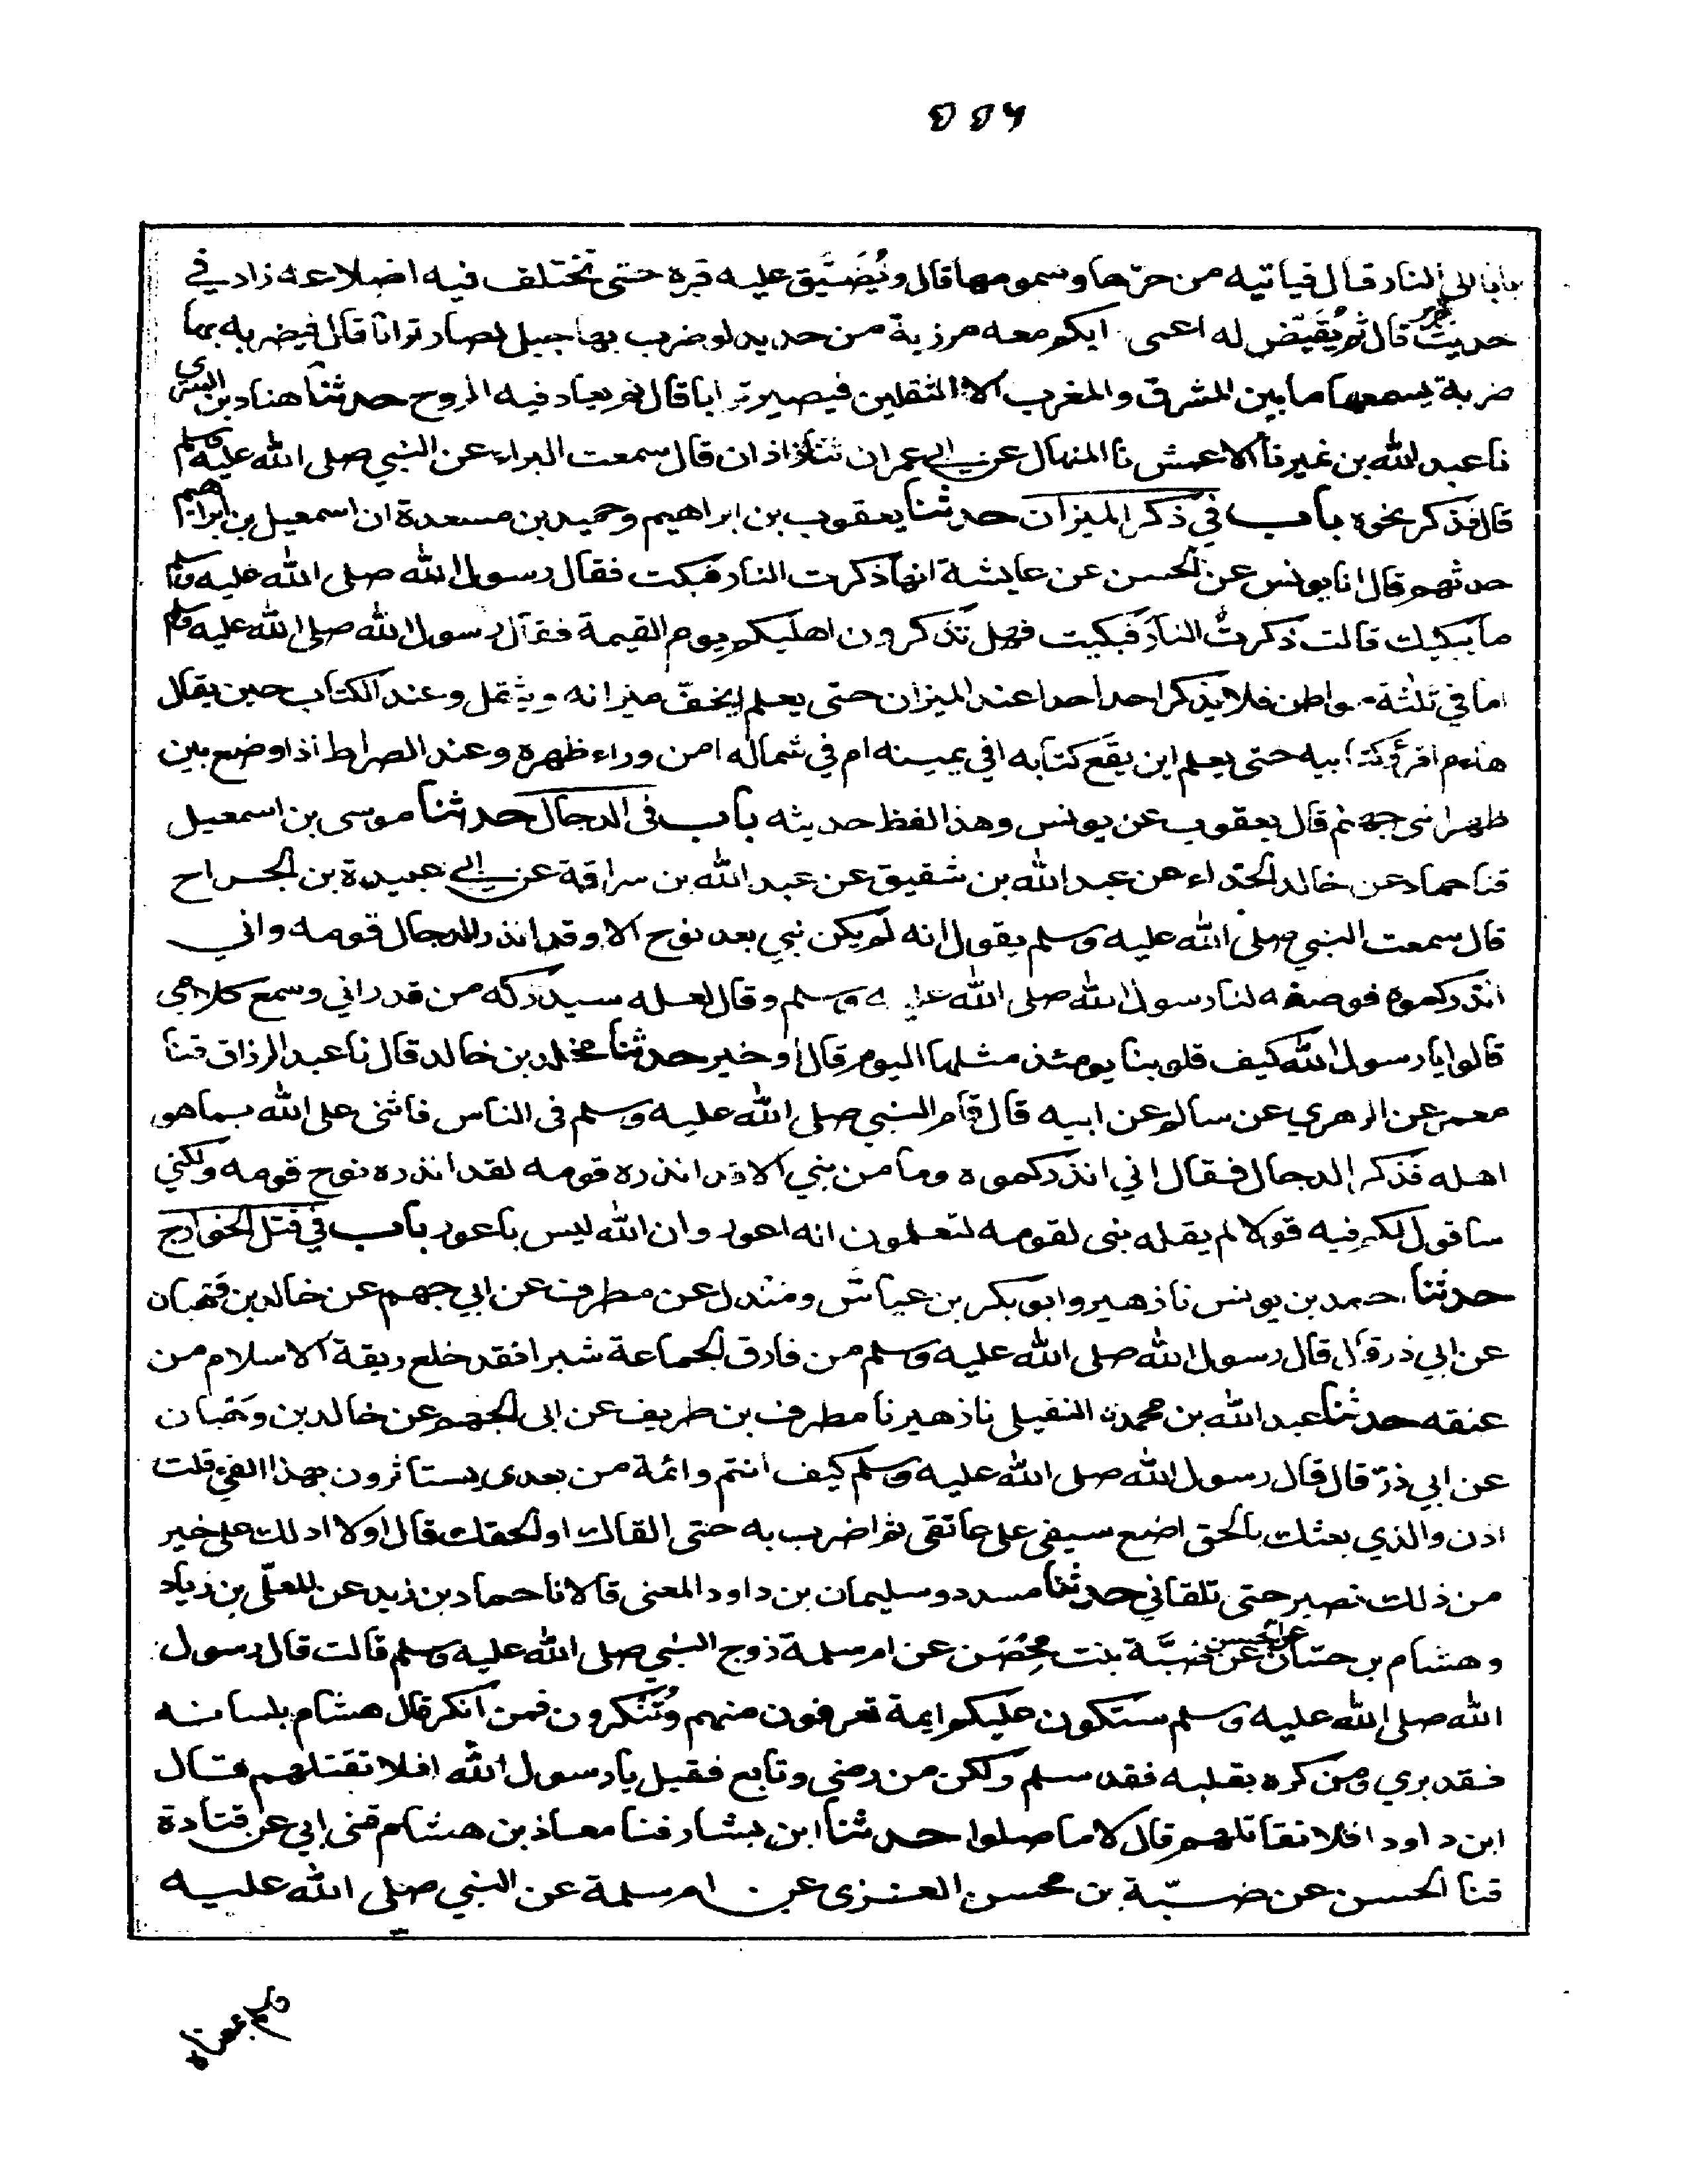 بابا الى النار قال فياتيه من حرّها وسمومها قال ويُضَيَّق عليه قبره حتى تختلف فيه اضلاعه زاد في
حديث جرير قال ثم يُقَيَّض له اعمى ابكم معه مرزبة من حديد لو ضرب بها جبل لصار ترابا قال فيضربه بها
ضربة يسمعها ما بين المشرق والمغرب الا الثقلين فيصير ترابا قال ثم يعاد فيه الروح حدثنا هناد بن السرى
نا عبد الله بن نمير نا الاعمش نا المنهال عن ابي عمران ثنا زاذان قال سمعت البراء عن النبي صلى الله عليه وسلم
قال فذكر نحوه باب في ذكر الميزان حدثنا يعقوب بن ابراهيم وحميد بن مسعدة ان اسمعيل بن ابراهيم
حدثهم قال انا يونس عن الحسن عن عايشة انها ذكرت النار فبكت فقال رسول الله صلى الله عليه وسلم
ما يبكيك قالت ذكرتُ النار فبكيت فهل تذكرون اهليكم يوم القيمة فقال رسول الله صلى الله عليه وسلم
اما في ثلثة مواطن فلا يذكر احد احدا عند الميزان حتى يعلم ايخفّ ميزانه ويثقل وعند الكتاب حين يقال
هاءم اقرؤا كتابيه حتى يعلم اين يقع كتابه افي يمينه ام في شماله ام من وراء ظهره وعند الصراط اذا وضع بين
ظهراني جهنم قال يعقوب عن يونس وهذا لفظ حديثه باب في الدجال حدثنا موسى بن اسمعيل
قنا حماد عن خالد الحذاء عن عبد الله بن شقيق عن عبد الله بن سراقة عن ابي عبيدة بن الجراح
قال سمعت النبي صلى الله عليه وسلم يقول انه لم يكن نبي بعد نوح الا وقد انذر الدجال قومه واني
انذركموه فوصفه لنا رسول الله صلى الله عليه وسلم وقال لعله سيدركه من قد راني وسمع كلامي
قالوا يا رسول الله كيف قلوبنا يومئذ مثلها اليوم قال او خير حدثنا مخلد بن خالد قال نا عبد الرزاق قنا
معمر عن الزهري عن سالم عن ابيه قال قام النبي صلى الله عليه وسلم في الناس فاثنى على الله بما هو
اهله فذكر الدجال فقال اني انذركموه وما من نبي الا قد انذره قومه لقد انذره نوح قومه ولكني
ساقول لكم فيه قولا لم يقله نبى لقومه لتعلمون انه اعور وان الله ليس باعور باب في قتل الخوارج
حدثنا احمد بن يونس نا زهير وابو بكر بن عياش ومندل عن مطرف عن ابي جهم عن خالد بن وهبان
عن ابي ذر قال قال رسول الله صلى الله عليه وسلم من فارق الجماعة شبرا فقد خلع ربقة الاسلام من
عنقه حدثنا عبد الله بن محمد النفيلي نا زهير نا مطرف بن طريف عن ابى الجهم عن خالد بن وهبان
عن ابي ذرّ قال قال رسول الله صلى الله عليه وسلم كيف انتم وائمة من بعدى يستاثرون بهذا الفيء قلت
اذن والذي بعثك بالحق اضع سيفي على عاتقى ثم اضرب به حتى القاك او الحقك قال اولا ادلك على خير
من ذلك تصبر حتى تلقاني حدثنا مسدد وسليمان بن داود المعنى قالا نا حماد بن زيد عن المعلّى بن زياد
وهشام بن حسّان عن الحسن عن ضبَّة بنت مِحْصَن عن ام سلمة زوج النبي صلى الله عليه وسلم قالت قال رسول
الله صلى الله عليه وسلم ستكون عليكم ايمة تعرفون منهم وتُنْكرون فمن انكر قال هشام بلسانه
فقد بري ومن كره بقلبه فقد سلم ولكن من رضى وتابع فقيل يا رسول الله افلا نقتلهم قال
ابن داود افلا نقاتلهم قال لا ما صلوا حدثنا ابن بشار قنا معاذ بن هشام قنى ابي عن قتادة
قنا الحسن عن ضبّة بن محسن العنزى عن ام سلمة عن النبي صلى الله عليه
وسلم بمعناه